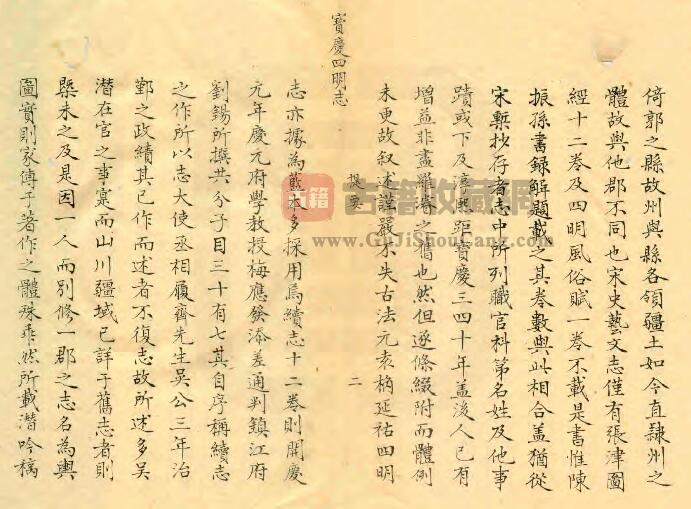 倚郭之縣故州與縣各領疆土如今直隸州之
體故與他郡不同也宋史藝文志僅有張津圖
經十二卷及四明風俗賦一卷不載是書惟陳
振孫書録解題載之其卷數與此相合蓋猶從
宋槧抄存者志中所列職官科第名姓及他事
蹟或下及淳熙距寶慶三四十年蓋後人已有
增益非盡羅濬之舊也然但逐條綴附而體例
未更故叙述謹嚴不失古法元袁桷延祐四明
寶慶四明志
提要
二
志亦據為藍本多採用焉續志十二卷則開慶
元年慶元府學教授梅應發添差通判鎮江府
劉錫所撰共分子目三十有七其自序稱續志
之作所以志大使丞相履齋先生吳公三年治
鄞之政績其已作而述者不復志故所述多吳
潛在官之事實而山川疆域已詳于舊志者則
槩未之及是因一人而別修一郡之志名為輿
圖實則家傳于著作之體殊乖然所載潛吟稿
古籍
古籍收藏网
www.GuJiShouCang.com